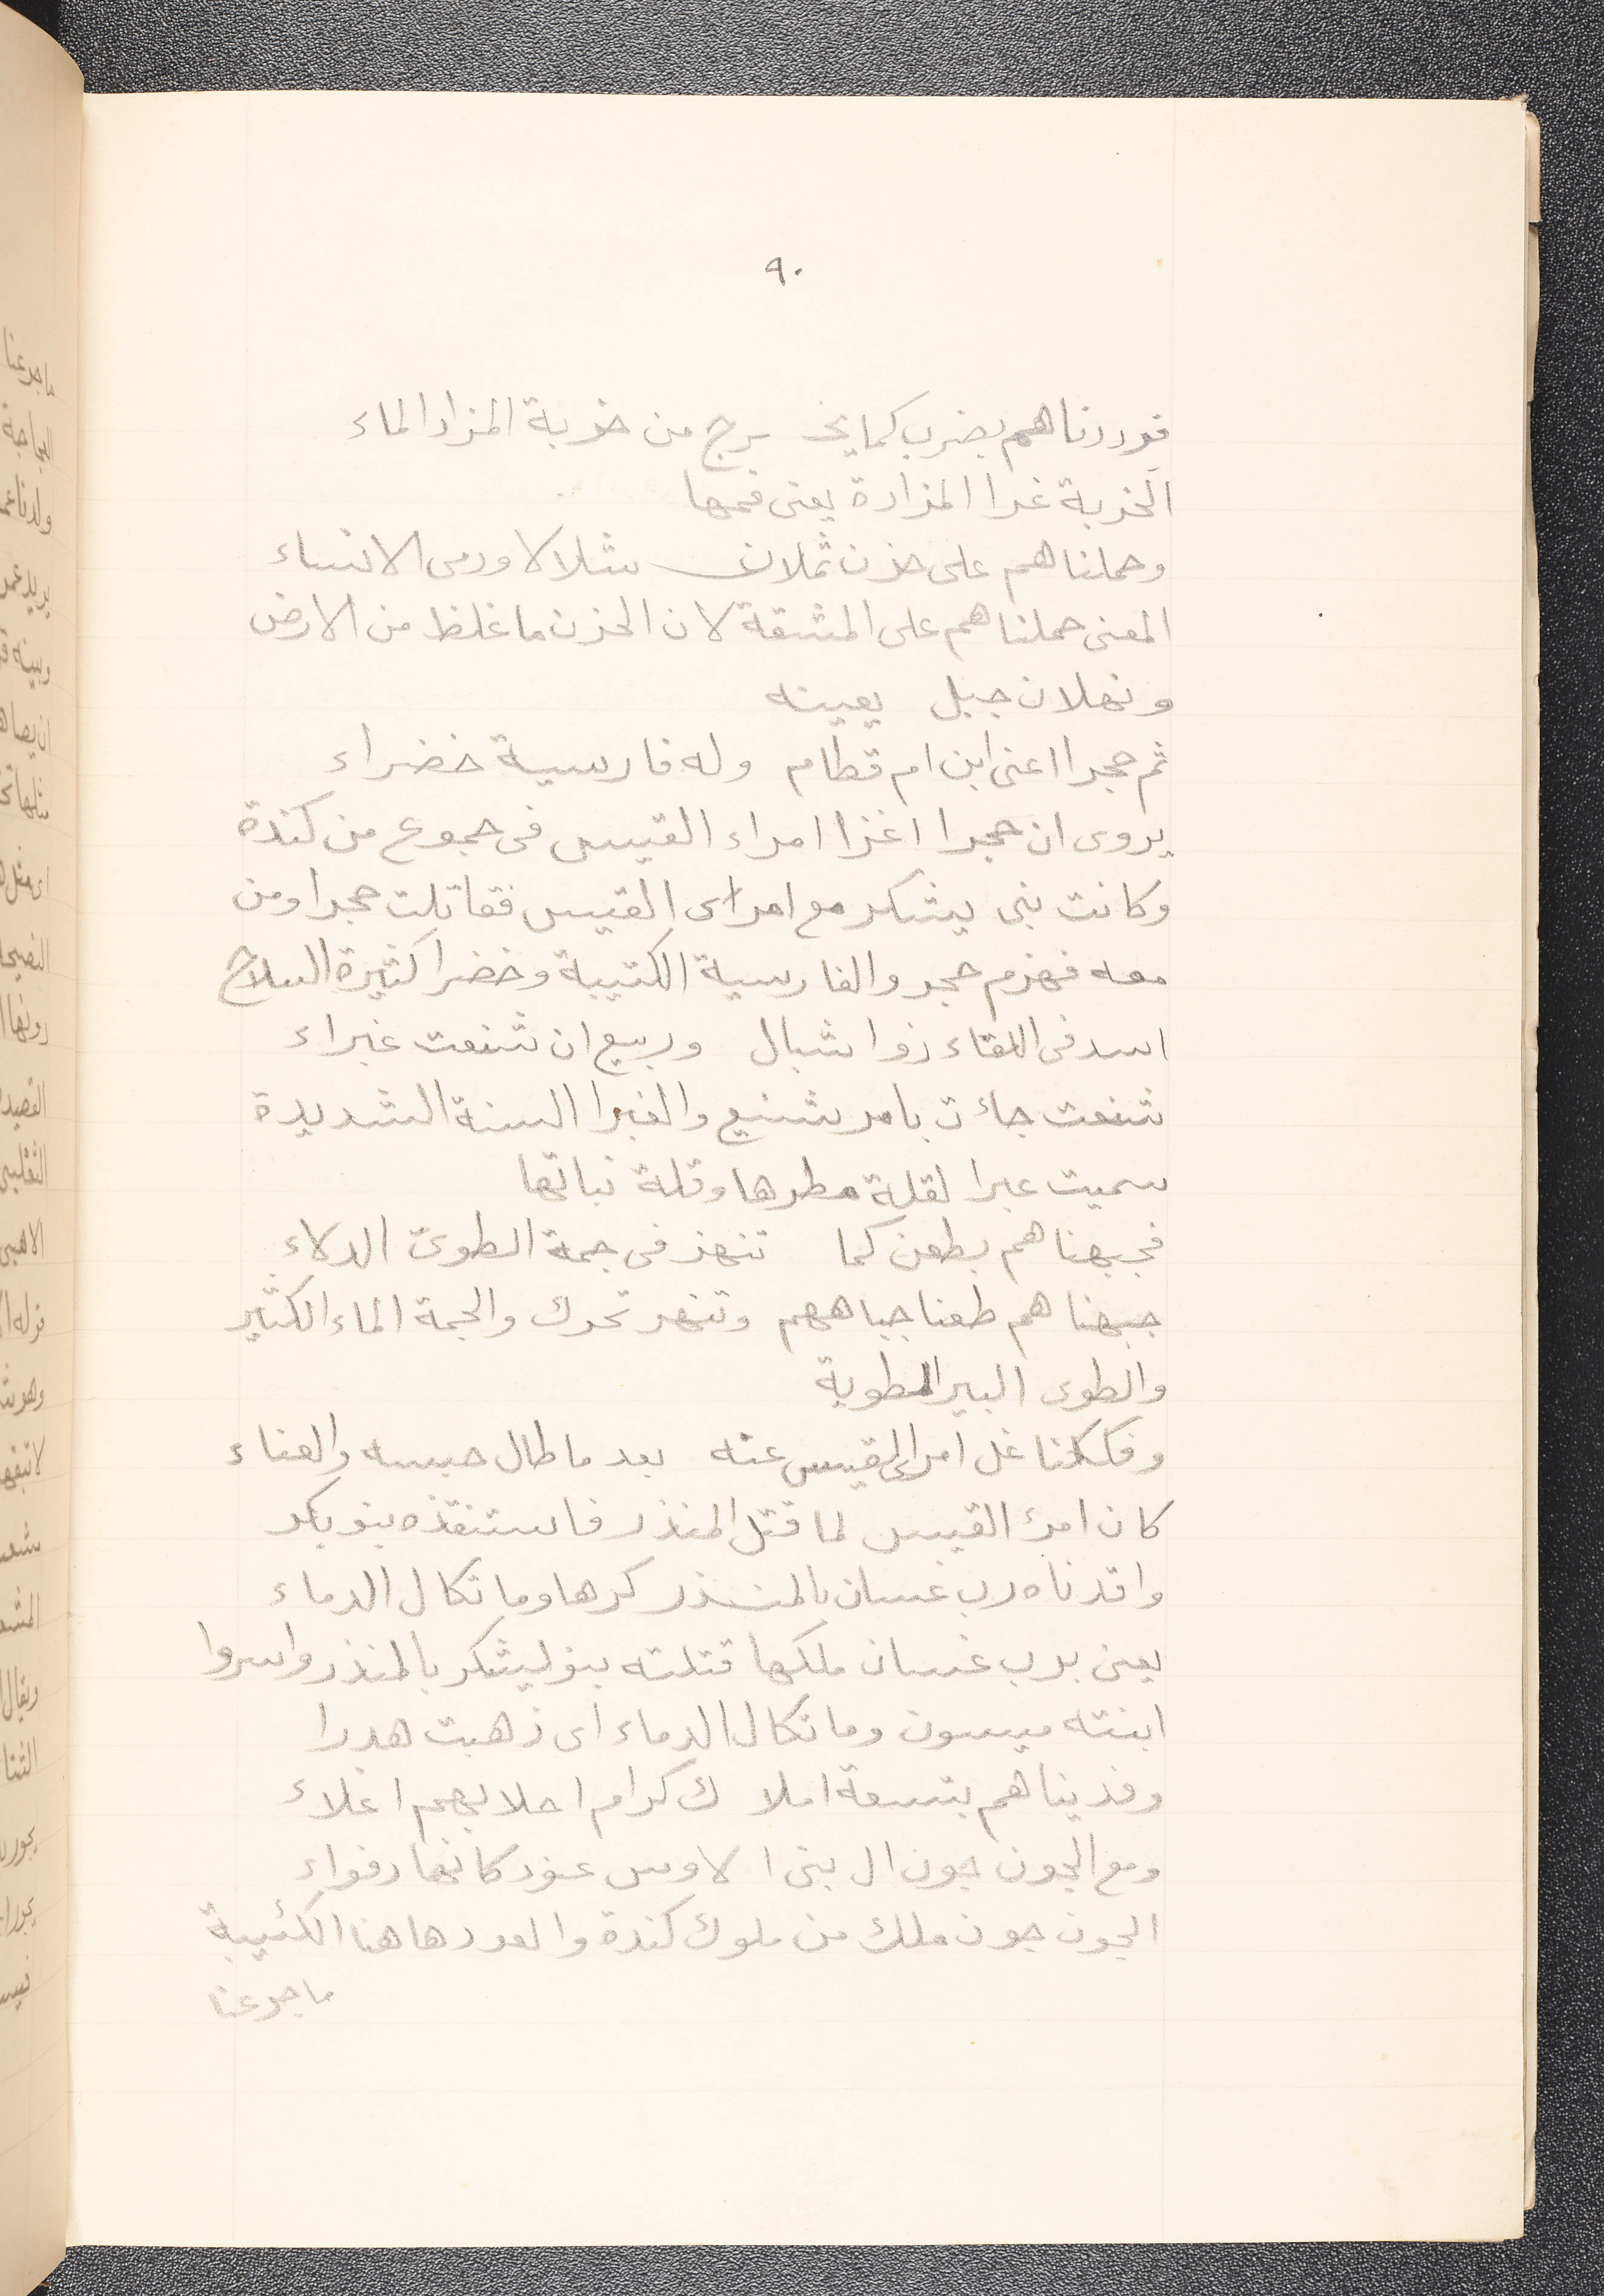 ٩٠
فورددناهم بضرب كما يخـ ـرج من خربة المزاد الماء
الخربة غدا المزادة يعنى فمها
وحملناهم على حزن ثهلان شلالا ودمى الانساء
المعنى حملناهم على المشقة لان الحزن ما غلظ من الارض
وثهلان جبل بعينه
ثم حجرا اعنى ابن ام قطام وله فارسية خضراء
يروى ان حجرا اغزا امراء القيس فى جموع من كندة
وكانت بنى يشكر مع امراى القيس فقاتلت حجرا ومن
معه فهزم حجر والفارسية الكتيبة وخضرا كثيرة السلاح
اسد فى اللقاء ذوا شبال وربيع ان شنعت غبراء
شنعت جائت بامر شنيع والغبرا السنة الشديدة
سميت غبرا لقلة مطرها وقلة نباتها
فجبهناهم بطعن كما تنهز فى جمة الطوىّ الدلاء
جبهناهم طعنا جباههم وتنهر تحرك والجمة الماء الكثير
والطوى البير المطوية
وفككنا غل امراى القيس عنه بعد ما طال حبسه والعناء
كان امرئ القيس لما قتل المنذر فاستنقذه بنو بكر
واقدناه رب غسان بالمنــذر كرها وما تكال الدماء
يعنى برب غسان ملكها قتلته بنو ليشكر بالمنذر واسروا
ابنته ميسون وما تكال الدماء اى ذهبت هدرا
وفديناهم بتسعة املا ك كرام احلابهم اغلاء
ومع الجون جون ال بنى ا لاوس عنود كانها دفواء
الجون جون ملك من ملوك كندة والعود هاهنا الكئيبة
ماجرعنا